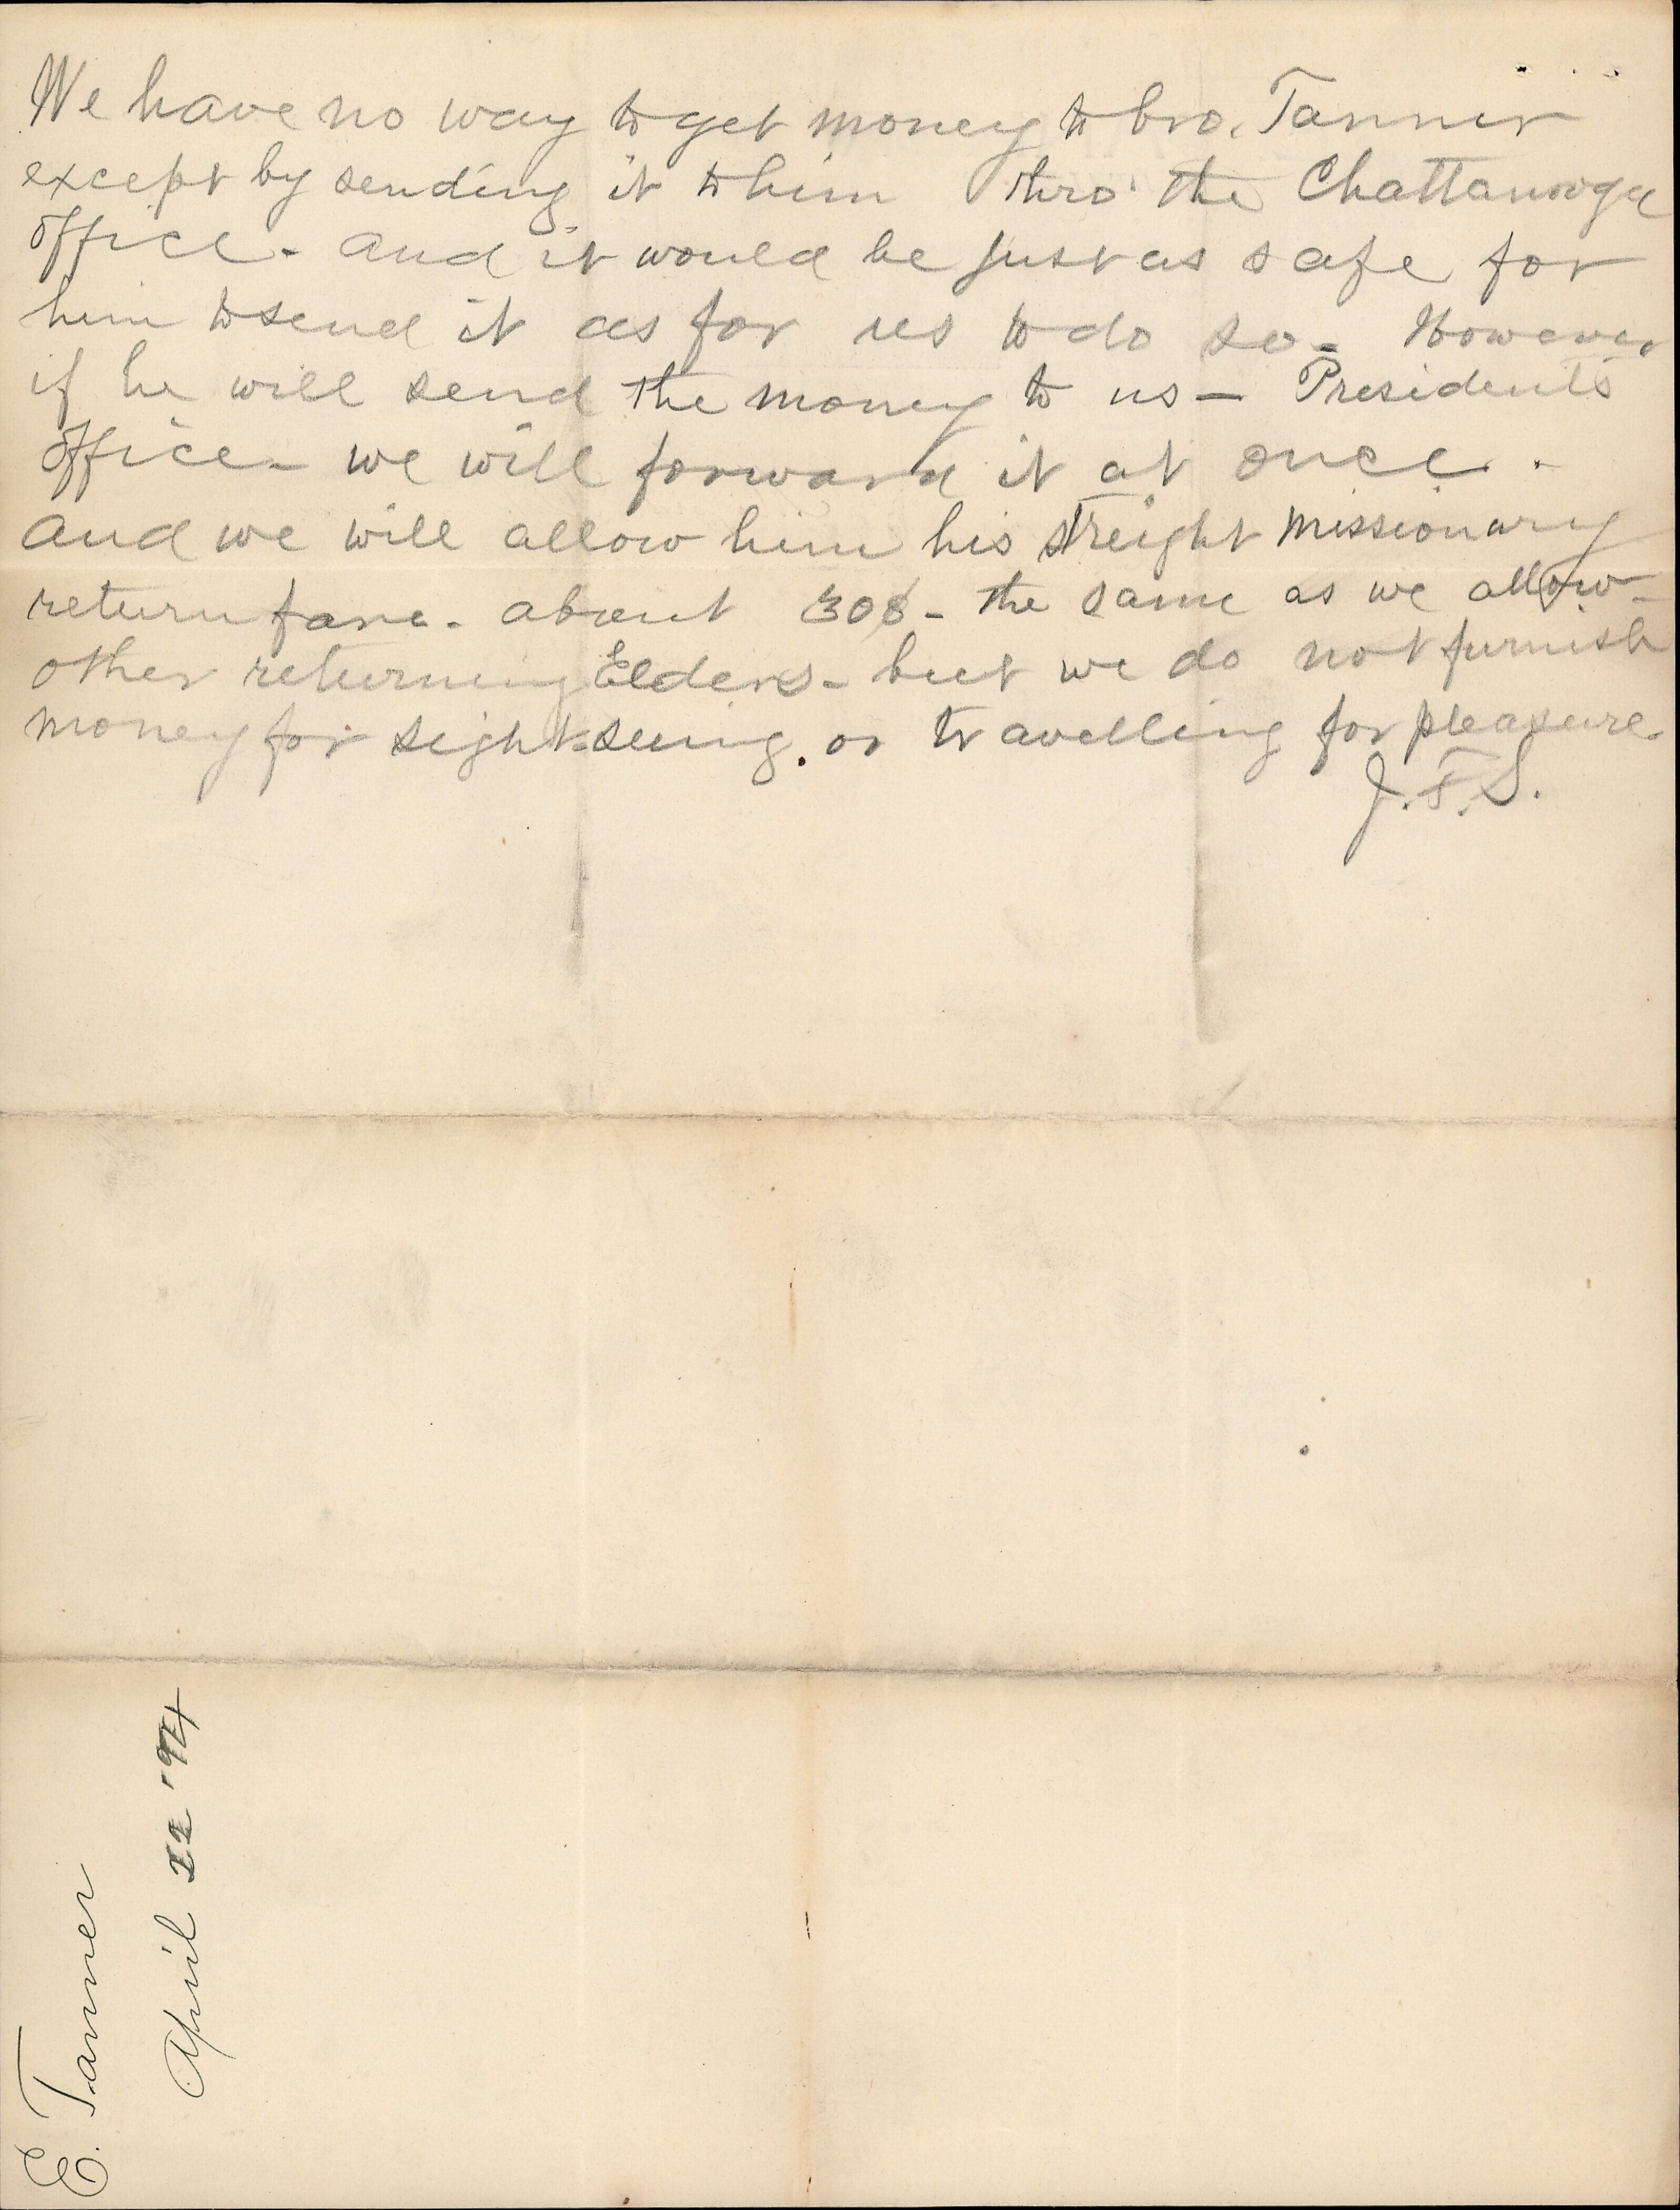 We have no way to get money to bro. Tanner
except by sending it to him thro' the Chattanooga
office - and it would be just as safe for
him to send it as for us to do so - However
if he will send the money to us - Presidents
office - we will forward it at once -
and we will allow him his streight missionary
return fare - about 30$ - the same as we allow -
other returning Elders - but we do not furnish
money for sight-seeing, or travelling for pleasure.
J. F. S.
E. Tanner
April 22 '94